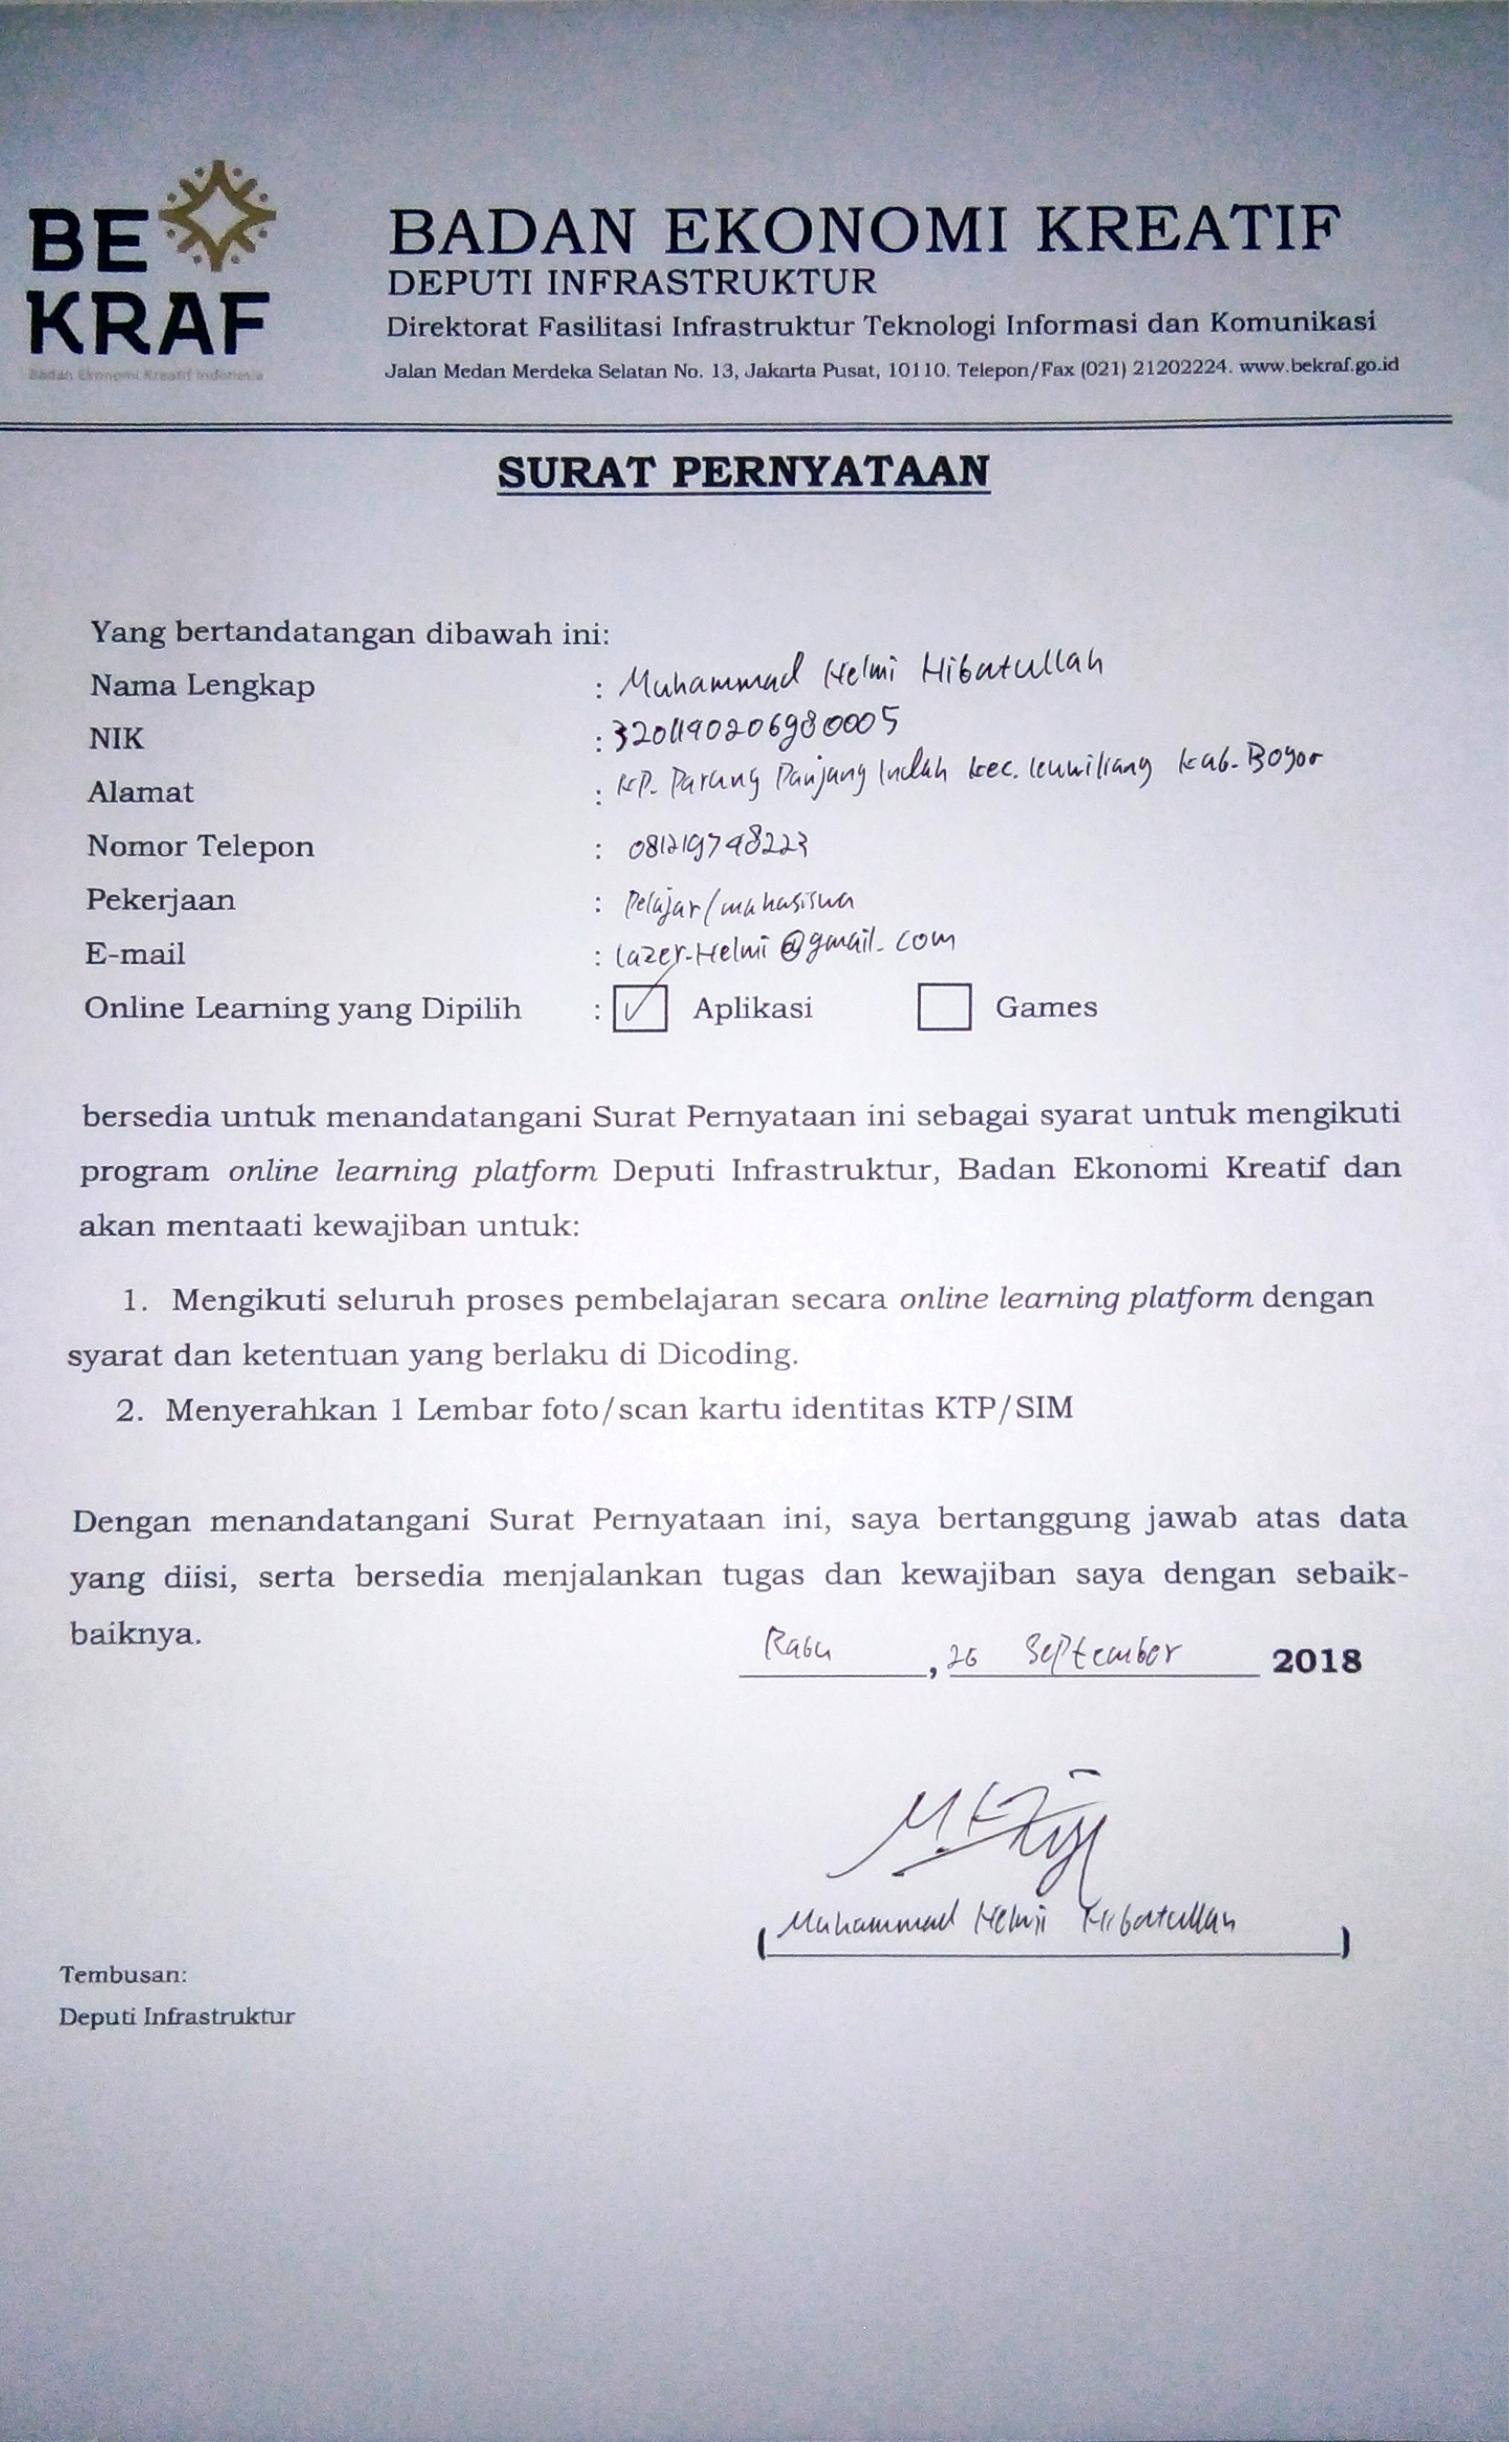 BE KRAF
Badan Ekonomi Kreatif Indonesia
BADAN EKONOMI KREATIF
DEPUTI INFRASTRUKTUR
Direktorat Fasilitasi Infrastruktur Teknologi Informasi dan Komunikasi
Jalan Medan Merdeka Selatan No. 13, Jakarta Pusat, 10110. Telepon/Fax (021) 21202224. www.bekraf.go.id
SURAT PERNYATAAN
Yang bertandatangan dibawah ini:
Nama Lengkap : Muhammad Helmi Hibatullah
NIK : 3201190206980005
Alamat : KP. Parung Panjang Indah Kec. Leuwiliang Kab. Bogor
Nomor Telepon : 081219748223
Pekerjaan : Pelajar/mahasiswa
E-mail : lazer.Helmi@gmail.com
Online Learning yang Dipilih : ✓ Aplikasi Games
bersedia untuk menandatangani Surat Pernyataan ini sebagai syarat untuk mengikuti
program online learning platform Deputi Infrastruktur, Badan Ekonomi Kreatif dan
akan mentaati kewajiban untuk:
1. Mengikuti seluruh proses pembelajaran secara online learning platform dengan
syarat dan ketentuan yang berlaku di Dicoding.
2. Menyerahkan 1 Lembar foto/scan kartu identitas KTP/SIM
Dengan menandatangani Surat Pernyataan ini, saya bertanggung jawab atas data
yang diisi, serta bersedia menjalankan tugas dan kewajiban saya dengan sebaik-
baiknya.
Rabu, 26 September 2018
(Muhammad Helmi Hibatullah)
Tembusan:
Deputi Infrastruktur